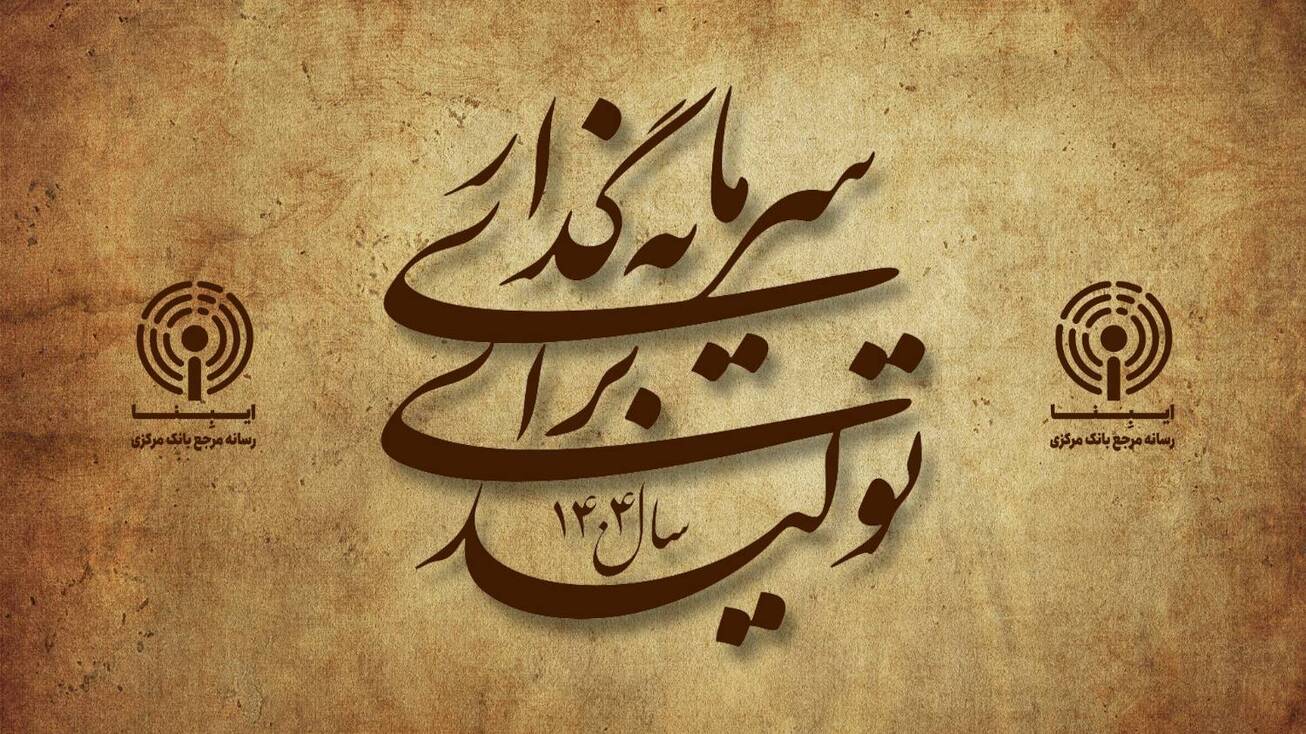 سرمایه‌گذاری
برای
تولید
سال ۱۴۰۴
ایبِنا
رسانه مرجع بانک مرکزی
ایبِنا
رسانه مرجع بانک مرکزی